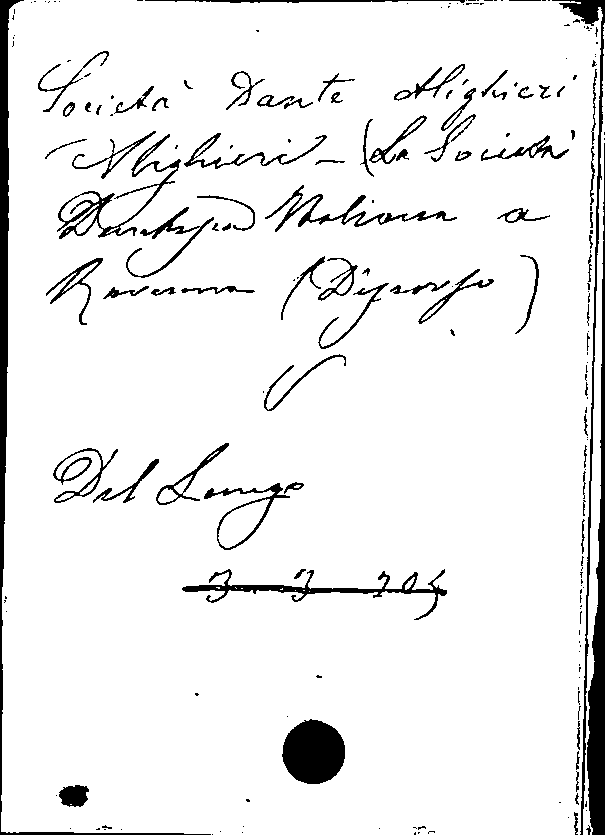 Società Dante Alighieri
Alighieri - (La Società
Dantesca Italiana a
Ravenna (Discorso)
Del Lungo
3. 3 205